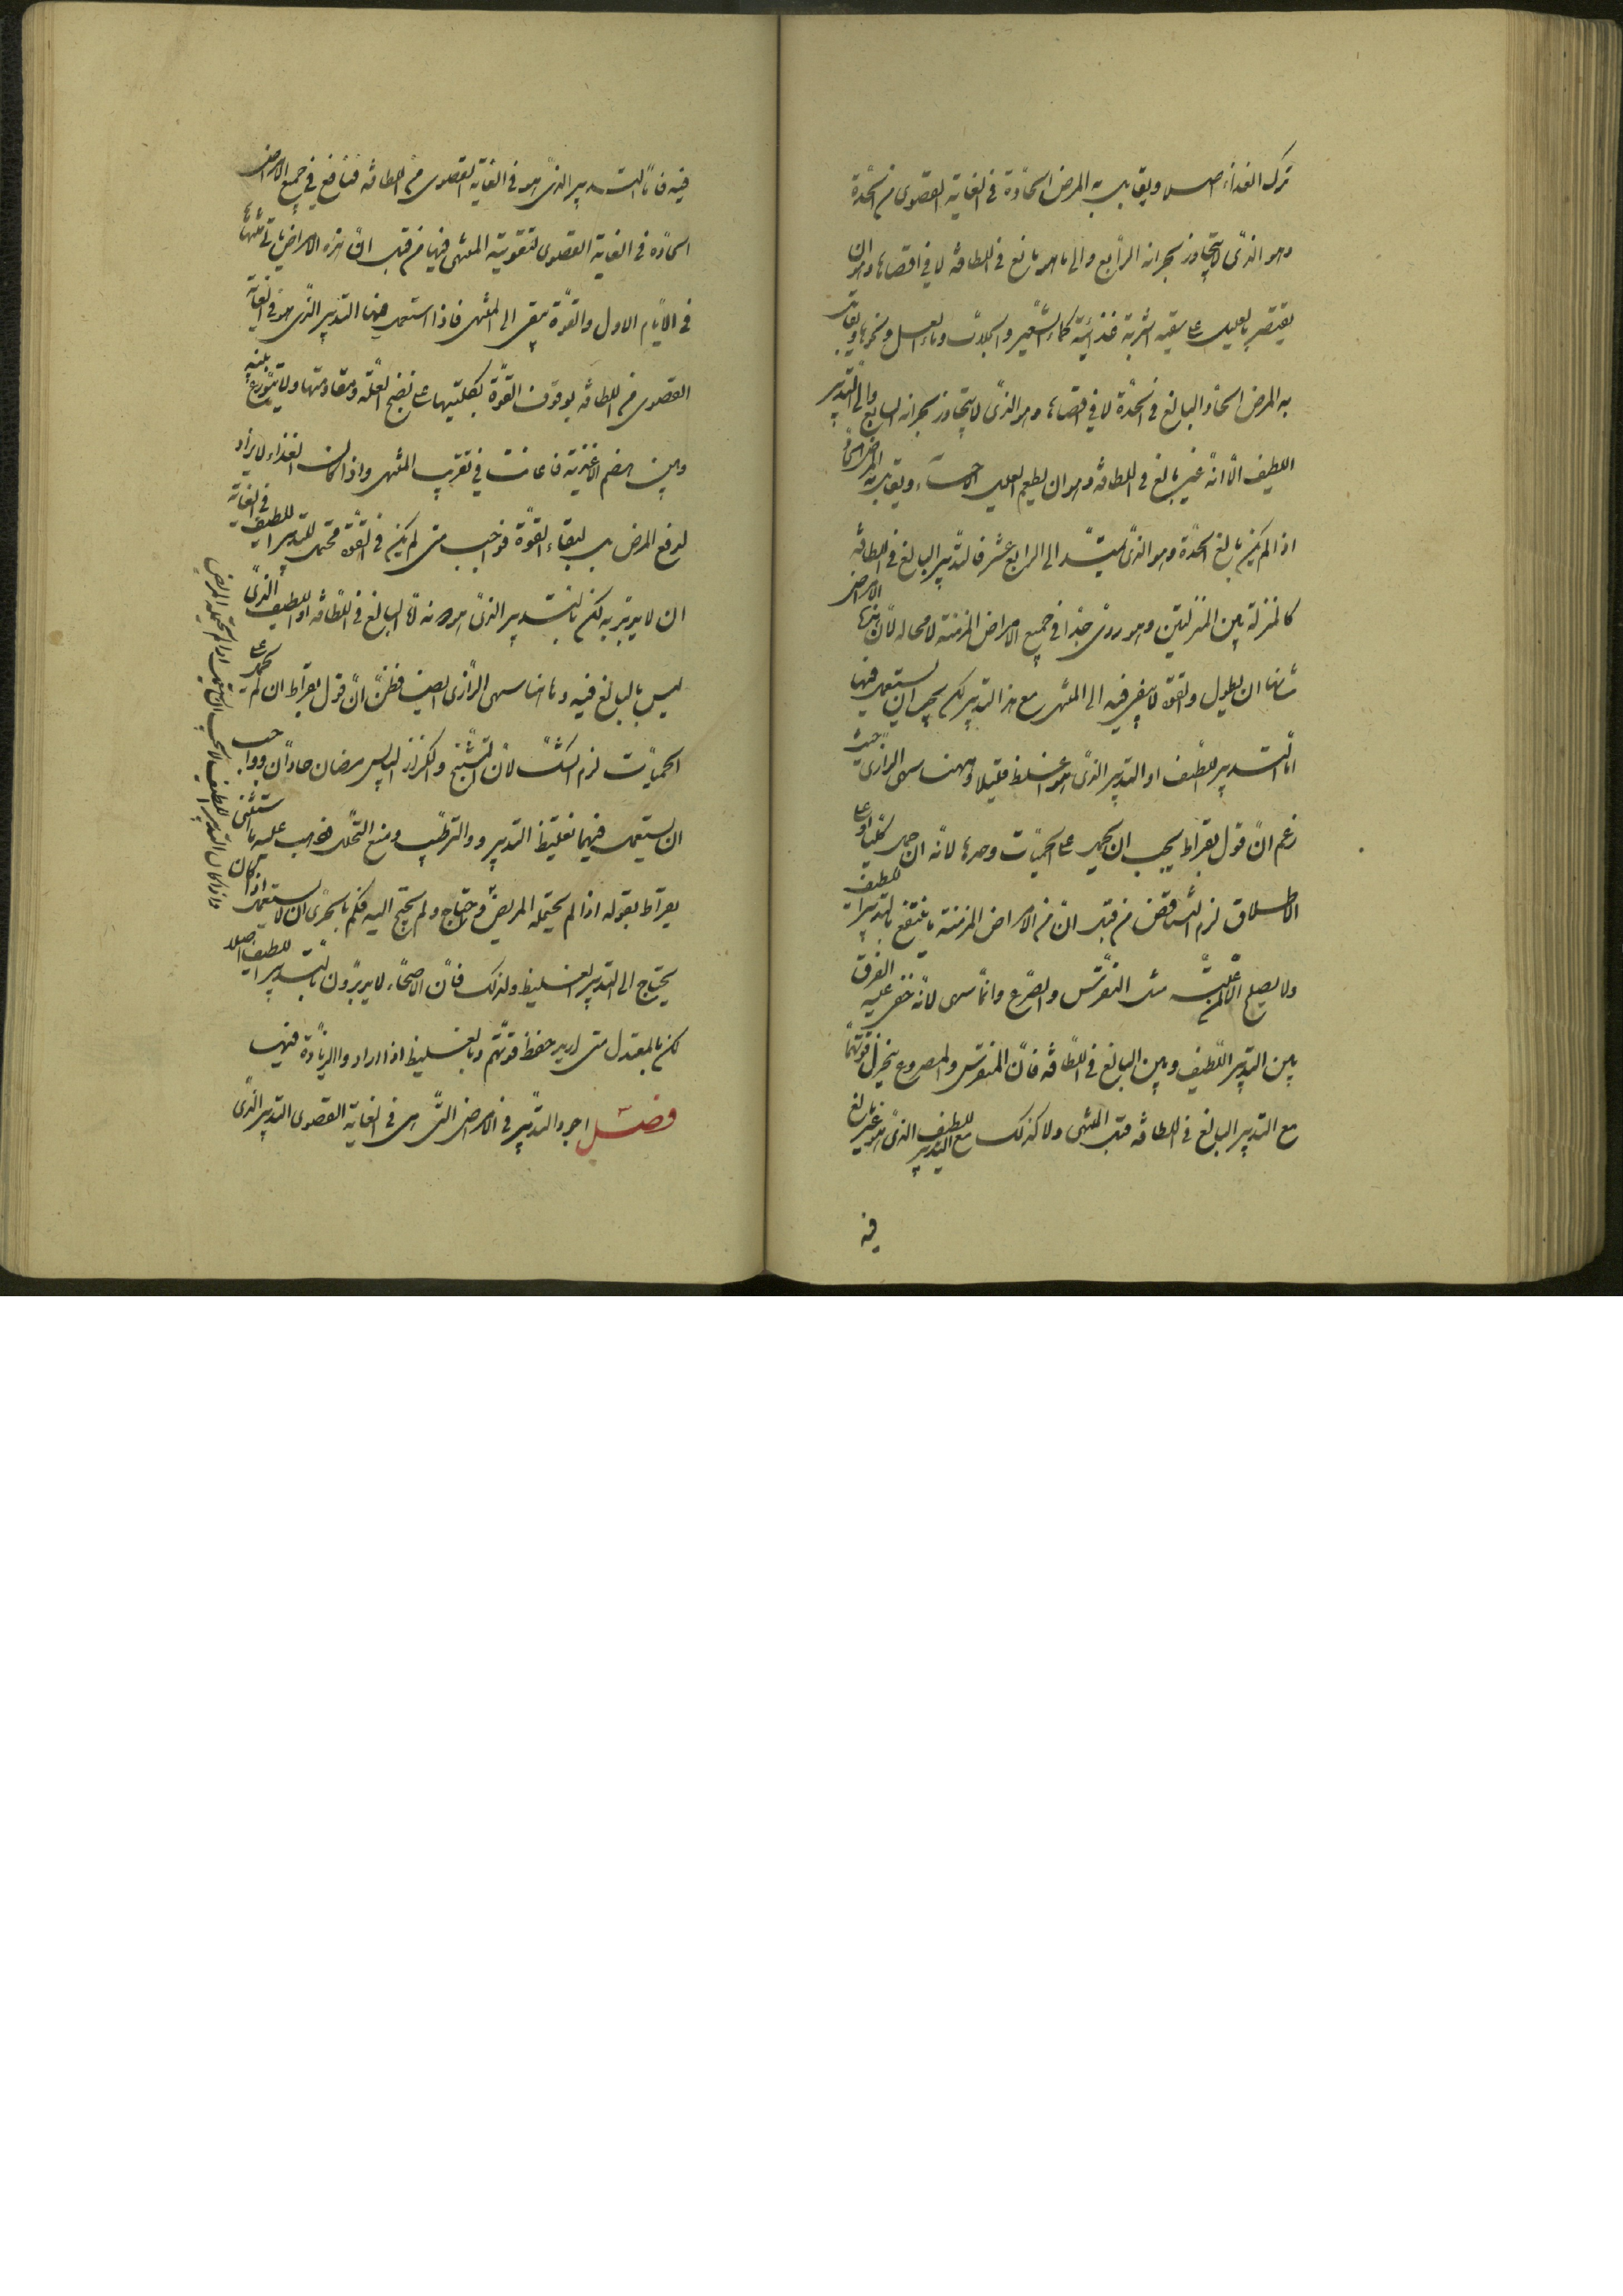 ترك الغذاء اصلا ويقابل به المرض الحادة في الغاية القصوى من الحدة
وهو الذى لا يتجاوز بحرانه الرابع والى ما هو بالغ في اللطافة لا في اقصاها وهو ان
يقتصر بالعليل على سقيه اشربة غذائية كماء الشعير والجلاب وماء العسل ونحوها ويقابل
به المرض الحاد البالغ في الحدة لا في اقصاها وهو الذى لا يتجاوز بحرانه السابع والى التدبير
اللطيف الا انه غير بالغ في اللطافة وهو ان يطعم العليل الاحساء ويقابل به المرض الحاد
اذا لم يكن بالغ الحدة وهو الذى يمتد الى الرابع عشر فالتدبير البالغ في اللطافة
كالمنزلة بين المنزلتين وهو ردى جدا في جميع الامراض المزمنة لا محالة لان هذه الامراض
شانها ان يطول والقوة لا يبقى فيه الى المنتهى مع هذا التدبير لكن يجب ان يستعمل فيها
اما التدبير اللطيف او التدبير الذى هو اغلظ قليلا وههنا سهى الرازى حيث
زعم ان قول بقراط يجب ان يحمل على الحميات وحدها لانه ان حمل كليا وعلى
الاطلاق لزم التناقض من قبل ان من الامراض المزمنة ما ينتفع بالتدبير اللطيف
ولا يصلح الا عليه مثل النقرس والصرع وانما سهى لانه خفى عليه الفرق
بين التدبير اللطيف وبين البالغ في اللطافة فان المنقرس والمصروع ينخزل قوتهما
مع التدبير البالغ في اللطافة قبل المنتهى ولا كذلك مع التدبير اللطيف الذى هو غير بالغ
فيه
فيه فاما التدبير الذى هو في الغاية القصوى من اللطافة فنافع في جميع الامراض
الحادة في الغاية القصوى لتقوية المنتهى فيها من قبل ان هذه الامراض ياتى منتهاها
في الايام الاول والقوة تبقى الى المنتهى فاذا استعمل فيها التدبير الذى هو في الغاية
القصوى من اللطافة يوقوف القوة بكليتها على نضج العلة ومقاومتها ولا يتوزع بينه
وبين هضم الاغذية فاعانت في تقريب المنتهى واذا كان الغذاء لا يراد
لدفع المرض بل لبقاء القوة فواجب متى لم يكن في القوة محتمل للتدبير اللطيف في الغاية
ان لا يدبر به لكن بالتدبير الذى هو دونه اما البالغ في اللطافة او اللطيف الذى
ليس بالبالغ فيه وههنا سهى الرازى ايضا فظن ان قول بقراط ان لم يحمل على
الحميات لزم الشك لان التشنج والكزاز اليابس مرضان حادان وواجب
ان يستعمل فيهما تغليظ التدبير والترطيب ومنع التحلل فذهب عليه ما استثنى
بقراط بقوله اذا لم يحتمله المريض فمن احتاج ولم يحتج اليه فكم بالحرى ان لا يستعمل اذا كان
يحتاج الى التدبير الغليظ ولذلك فان الاصحاء لا يدبرون بالتدبير اللطيف اصلا
لكن بالمعتدل متى اريد حفظ قوتهم وبالغليظ اذا ارادوا الزيادة فيها
فصل اجود التدبير في الامراض التى هى في الغاية القصوى التدبير الذى
واذا كان التدبير اللطيف لا يجب ان يستعمل اذا لم يحتمله المريض